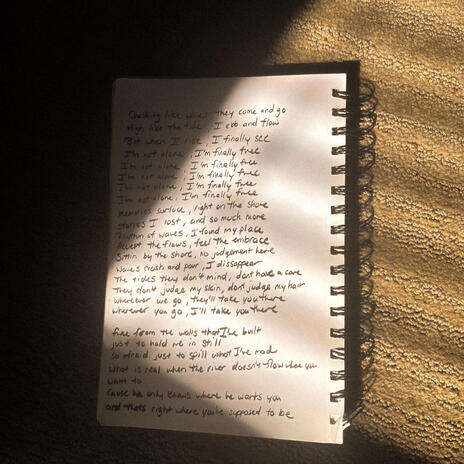 Crashing like waves, they come and go
High like the tide, I ebb and flow
But when I rise, I finally see
I'm not alone, I'm finally free
I'm not alone, I'm finally free
I'm not alone, I'm finally free
I'm not alone, I'm finally free
I'm not alone, I'm finally free
Memories surface, right on the shore
Stories I lost, and so much more
Rhythm of waves, I found my place
Accept the flaws, feel the embrace
Sittin by the shore, no judgement here
Waves crash and pour, I dissappear
The tides they don't mind, dont have a care
They don't judge my skin, dont judge my hair
Wherever we go, they'll take you there
Wherever you go, I'll take you there
free from the walls that I've built
just to hold me in still
so afraid just to spill what I've
what is real when the river doesn't flow where you
want to
cause he only knows where he wants you
and thats right where you're supposed to be